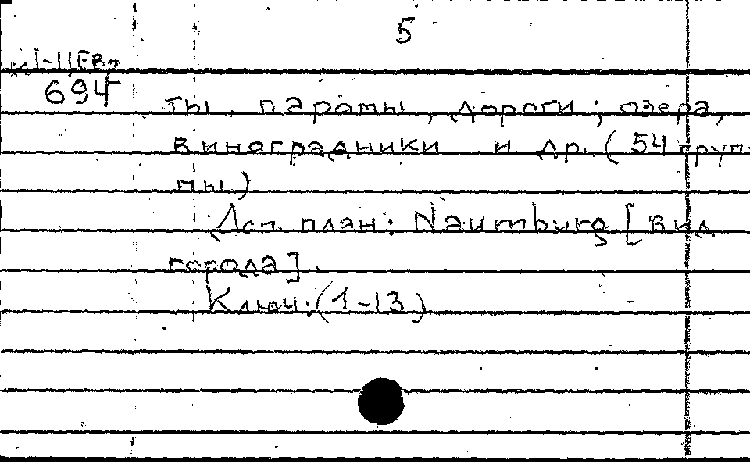 5
694
ты, паромы, дороги; озера,
виноградники и др. (54 груп-
пы)
Доп. план: Naumburg [вид
города].
Ключ: (1-13)